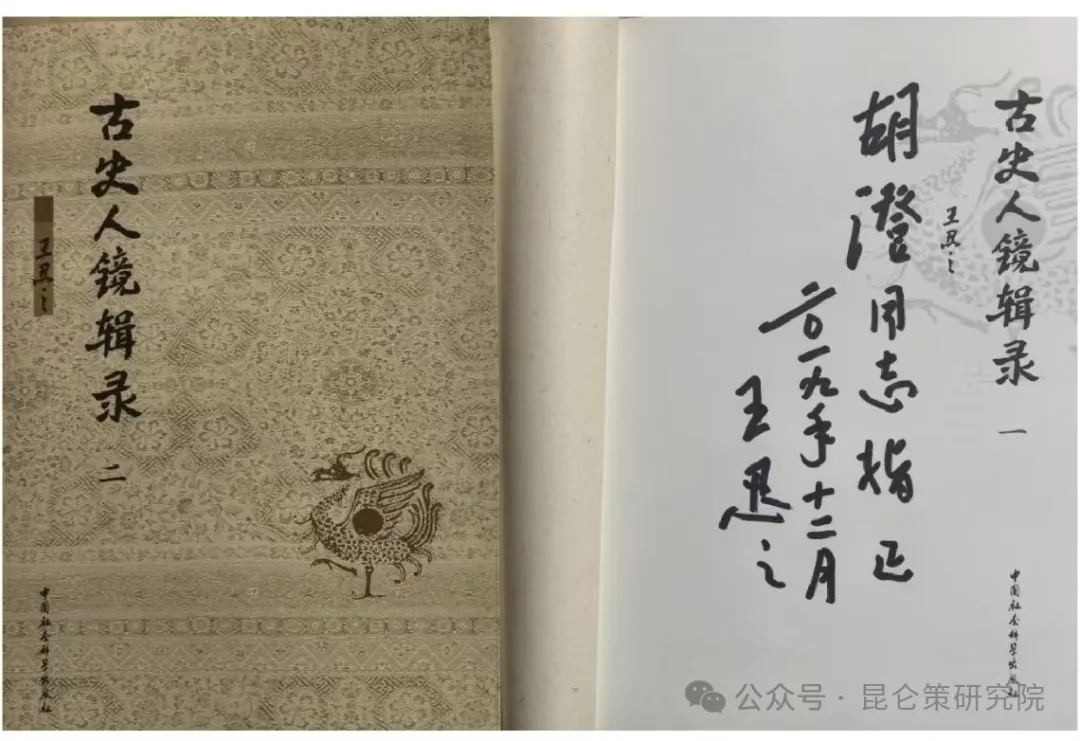 古史人镜辑录 二
王忍之
中国社会科学出版社
古史人镜辑录 一
王忍之
中国社会科学出版社
胡澄同志指正
二〇一九年十二月
王忍之
公众号·昆仑策研究院